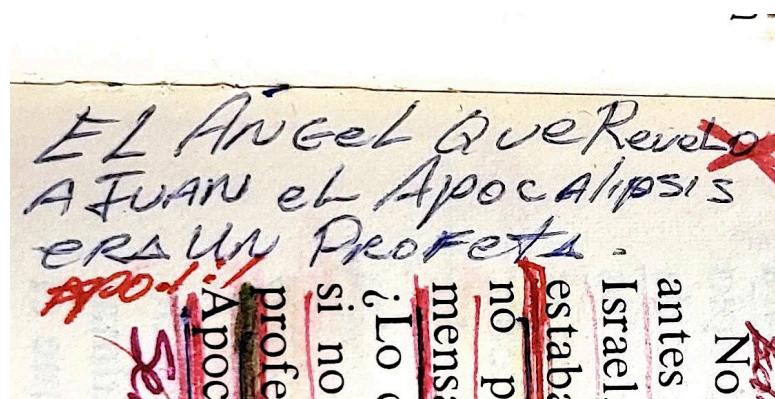 EL ÁNGEL QUE REVELO
A JUAN EL APOCALIPSIS
ERA UN PROFETA.
APO.1:1
No
antes
Israel
estaba
no p
mensa
¿Lo
si no
profe
Apoc